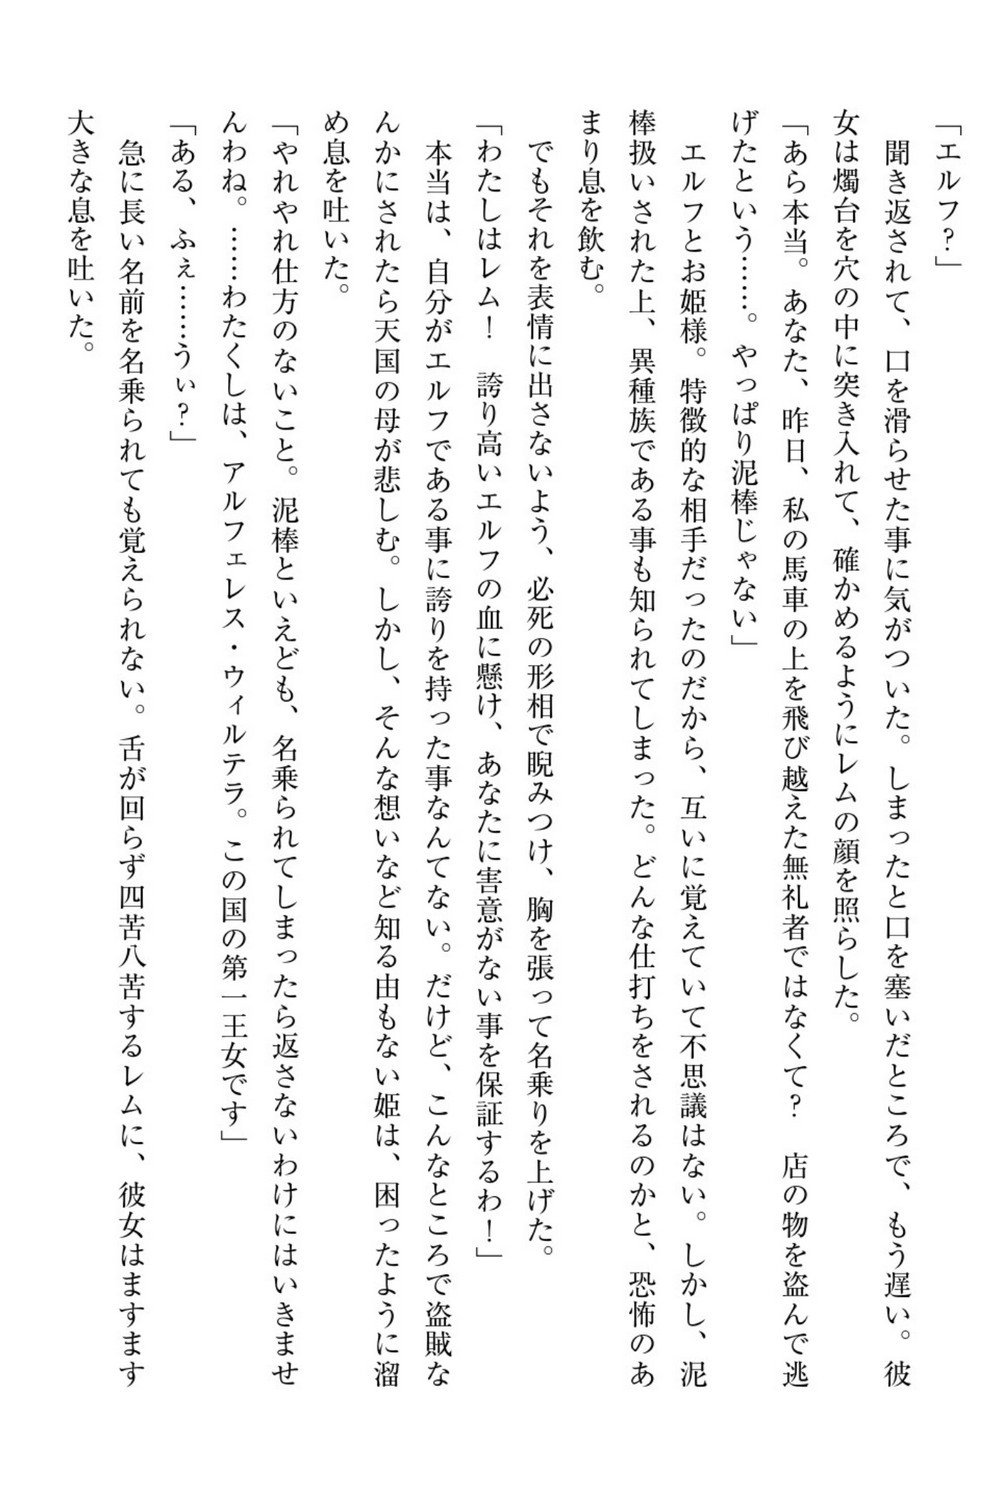 「エルフ？」
　聞き返されて、口を滑らせた事に気がついた。しまったと口を塞いだところで、もう遅い。彼
女は燭台を穴の中に突き入れて、確かめるようにレムの顔を照らした。
「あら本当。あなた、昨日、私の馬車の上を飛び越えた無礼者ではなくて？　店の物を盗んで逃
げたという……。やっぱり泥棒じゃない」
　エルフとお姫様。特徴的な相手だったのだから、互いに覚えていて不思議はない。しかし、泥
棒扱いされた上、異種族である事も知られてしまった。どんな仕打ちをされるのかと、恐怖のあ
まり息を飲む。
　でもそれを表情に出さないよう、必死の形相で睨みつけ、胸を張って名乗りを上げた。
「わたしはレム！　誇り高いエルフの血に懸け、あなたに害意がない事を保証するわ！」
　本当は、自分がエルフである事に誇りを持った事なんてない。だけど、こんなところで盗賊な
んかにされたら天国の母が悲しむ。しかし、そんな想いなど知る由もない姫は、困ったように溜
め息を吐いた。
「やれやれ仕方のないこと。泥棒といえども、名乗られてしまったら返さないわけにはいきませ
んわね。……わたくしは、アルフェレス・ウィルテラ。この国の第一王女です」
「ある、ふぇ……うぃ？」
　急に長い名前を名乗られても覚えられない。舌が回らず四苦八苦するレムに、彼女はますます
大きな息を吐いた。